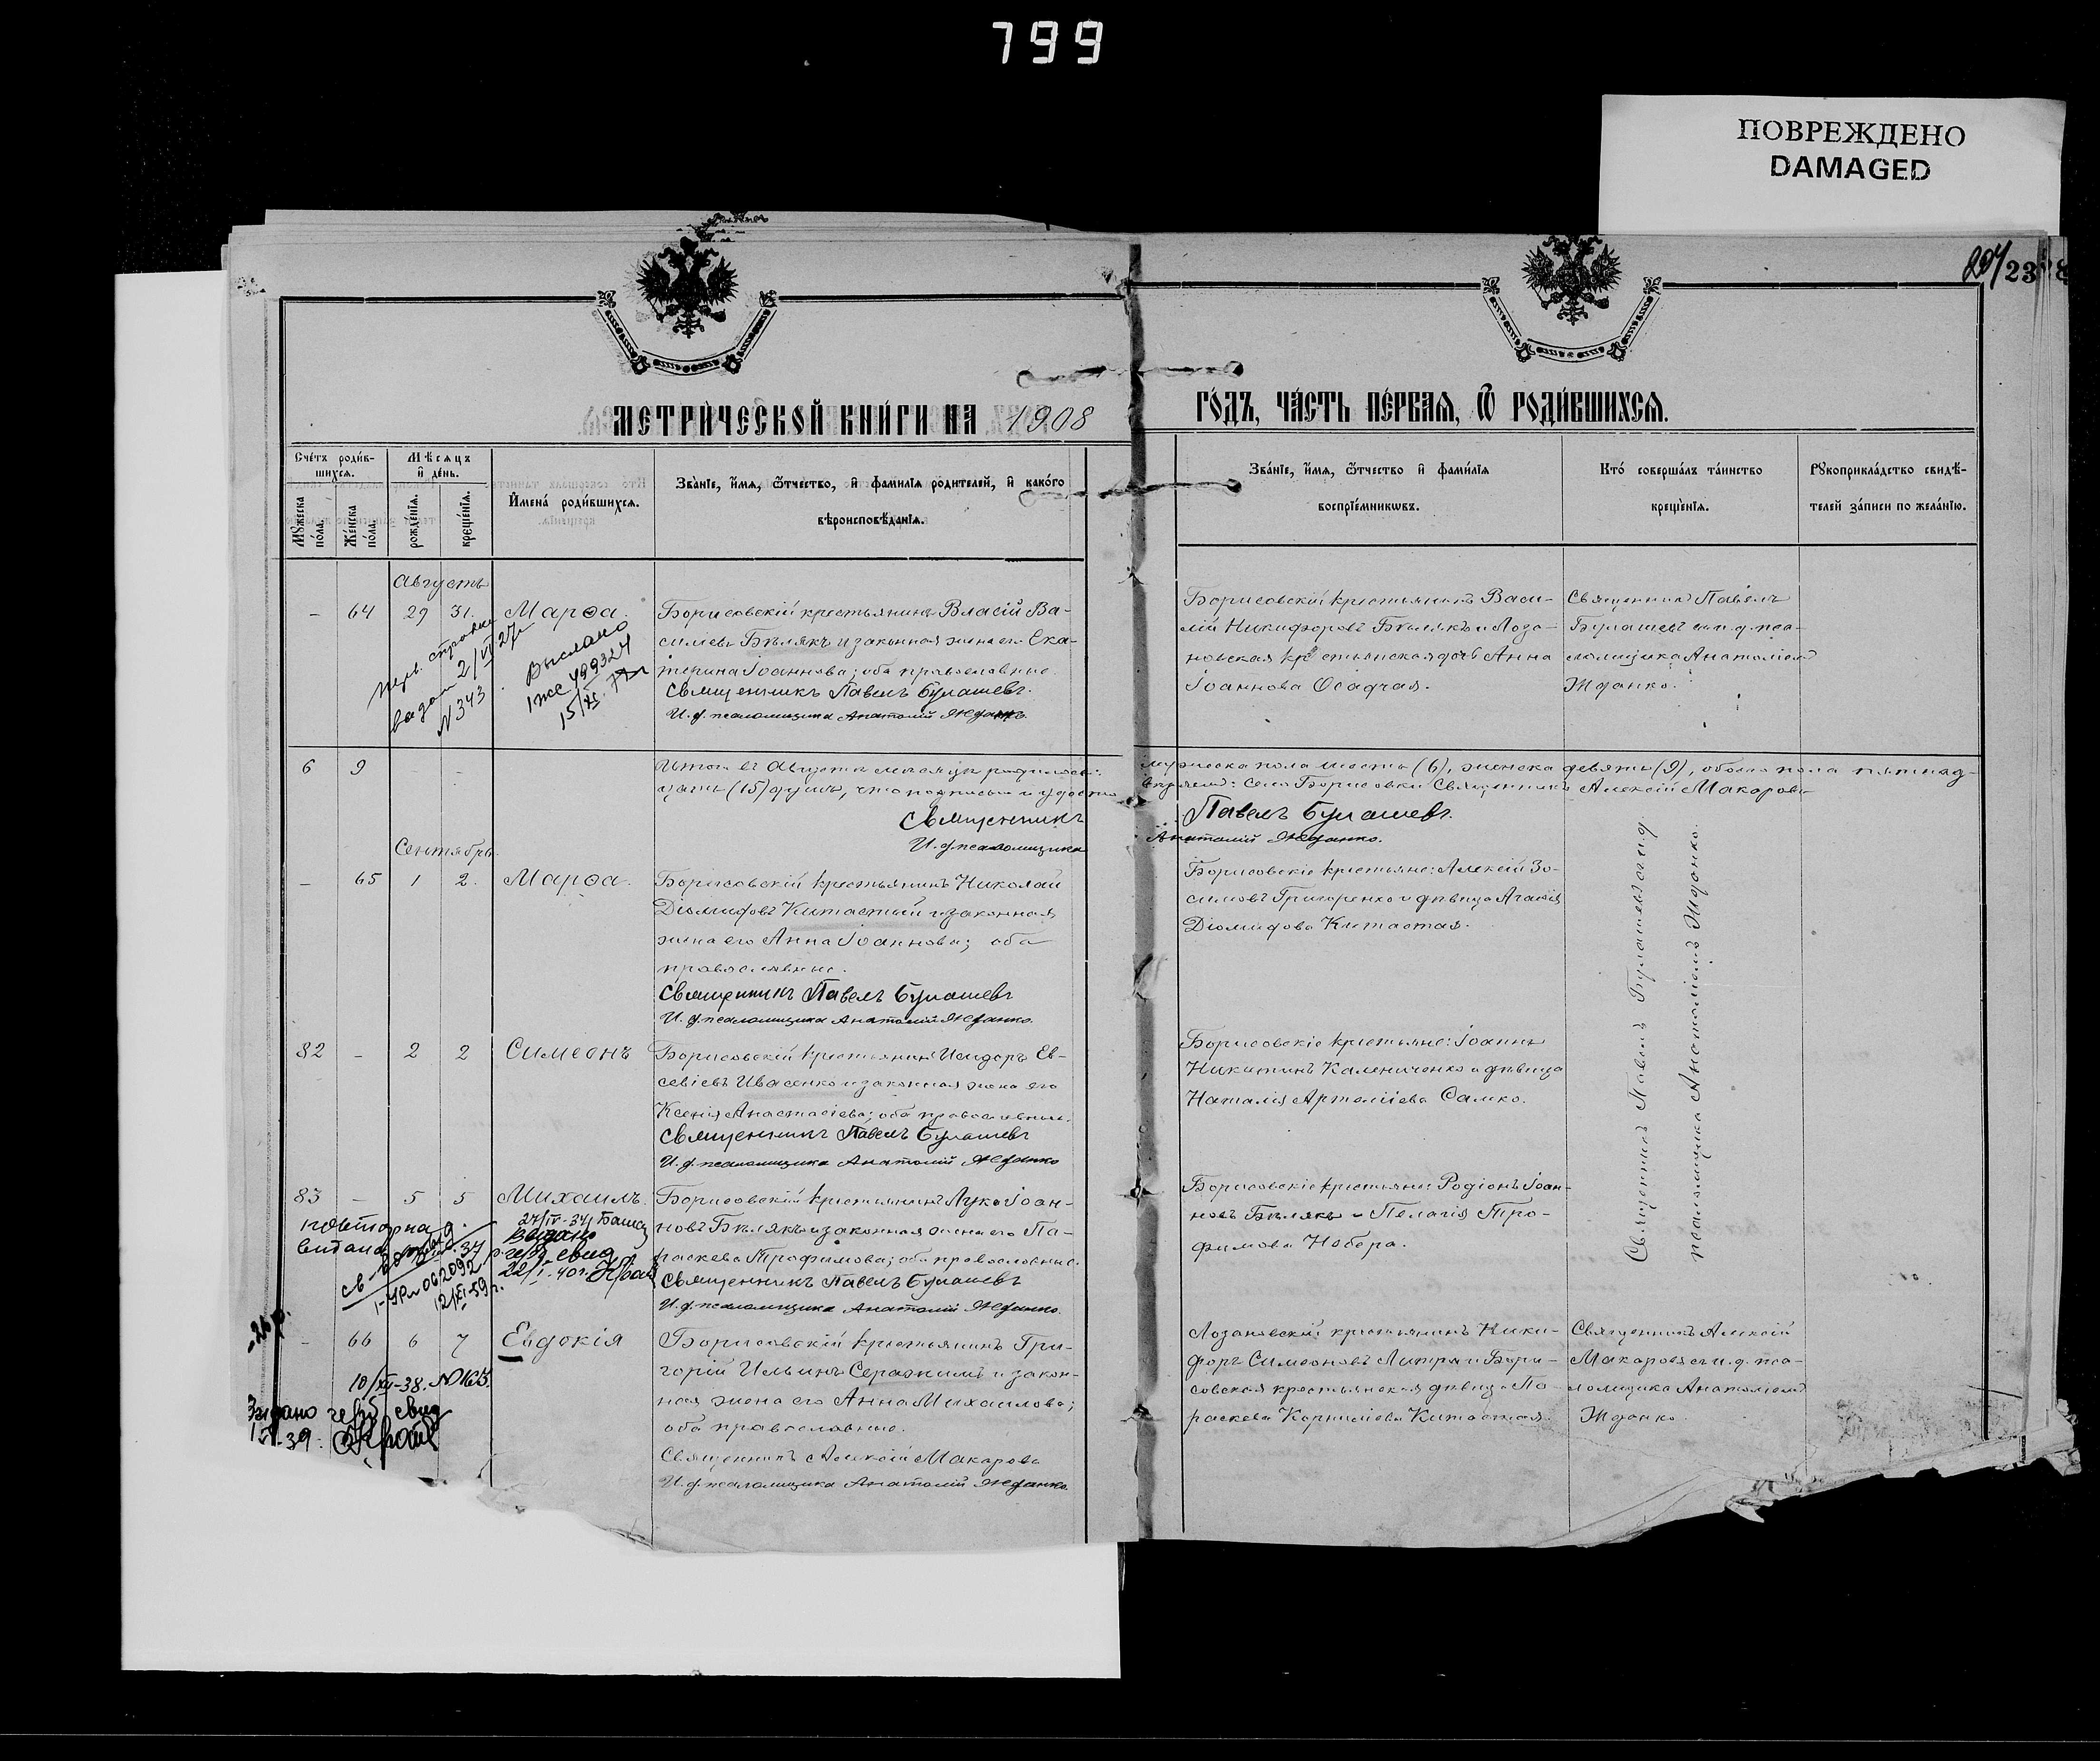 799
ПОВРЕЖДЕНО
DAMAGED
204/23
МЕТРИ́ЧЕСКОЙ КНИ́ГИ НА 1908
ГО́ДЪ, ЧА́СТЬ ПЕ́РВАЯ, Ѿ РОДИ́ВШИХСЯ.
Сче́тъ роди́в-
шихся.
Мѣсяцъ
и́ де́нь.
Мꙋжеска по́ла.
Же́нска по́ла.
рожде́нїѧ.
креще́нїѧ.
И҆мена̀ роди́вшихся.
Зва́нїе, и҆́мѧ, ѻ҆́тчество, и҆ фами́лїѧ роди́телей, и҆ како́го
вѣроисповѣ́данїѧ.
Зва́нїе, и҆́мѧ, ѻ҆́тчество и҆ фами́лїѧ
воспрїе́мникѡвъ.
Кто̀ соверша́лъ та́инство
креще́нїѧ.
Рꙋкоприкла́дство свидѣ́-
телей за́писи по жела́нїю.
Августъ
– 64 29 31. Марѳа.
Борисовскій крестьянинъ Власій Ва-
сильевъ Бѣлякъ и законная жена его Ека-
терина Іоаннова; оба православные.
Священникъ Павелъ Булашевъ.
И. д. псаломщика Анатолій Жданко.
Борисовскій крестьянинъ Васи-
лій Никифоровъ Бѣлякъ и Лозо-
новская крестьянская дочь Анна
Іоаннова Осадчая.
Священникъ Павелъ
Булашевъ съ и. д. пса-
ломщика Анатоліемъ
Жданко.
2/VI 27
N 343
Выслано
15/XI
6 9
Итого въ Августѣ мѣсяцѣ родилось: мужеска пола шесть (6), женска девять (9), обоего пола пятнад-
цать (15) душъ, что подписью и удостовѣряемъ: села Борисовки Священникъ Алексій Макаровъ
Священникъ Павелъ Булашевъ.
И. д. псаломщика Анатолій Жданко.
Сентябрь.
– 65 1 2. Марѳа.
Борисовскій крестьянинъ Николай
Діомидовъ Китастый и законная
жена его Анна Іоаннова; оба
православные.
Священникъ Павелъ Булашевъ
И. д. псаломщика Анатолій Жданко.
Борисовскіе крестьяне: Алексій Зо-
симовъ Григоренко и дѣвица Агаѳія
Діомидова Китастая.
Священникъ Павелъ Булашевъ съ и. д.
псаломщика Анатоліемъ Жданко.
82 – 2 2 Симеонъ
Борисовскій крестьянинъ Исидоръ Ев-
севіевъ Ивасенко и законная жена его
Ксенія Анастасіева; оба православные.
Священникъ Павелъ Булашевъ
И. д. псаломщика Анатолій Жданко
Борисовскіе крестьяне: Іоаннъ
Никитинъ Калениченко и дѣвица
Наталія Артеміева Самко.
83 – 5 5 Михаилъ.
Борисовскій крестьянинъ Лука Іоан-
новъ Бѣлякъ и законная жена его Па-
раскева Трофимова; оба православные.
Священникъ Павелъ Булашевъ
И. д. псаломщика Анатолій Жданко.
Борисовскіе крестьяне Родіонъ Іоан-
новъ Бѣлякъ и Пелагія Тро-
фимова Чобора.
повторна
видана
27/IV-34
22/I-40г.
12/XI-59 г.
– 66 6 7 Евдокія
Борисовскій крестьянинъ Гри-
горій Ильинъ Серажимъ и закон-
ная жена его Анна Михаилова;
оба православные.
Священникъ Алексій Макаровъ
И. д. псаломщика Анатолій Жданко.
Лозановскій крестьянинъ Ники-
форъ Симеоновъ Литра и Бори-
совская крестьянская дѣвица Па-
раскева Корнилова Китастая.
Священникъ Алексій
Макаровъ съ и. д. пса-
ломщика Анатоліемъ
Жданко
10/XII-38. N 165.